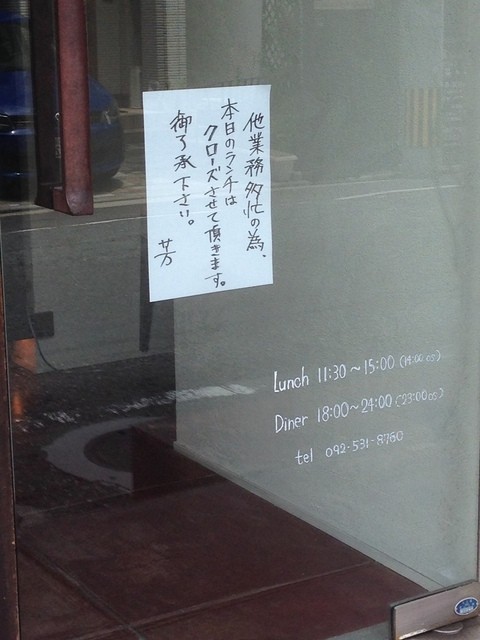 他業務多忙の為、
本日のランチは
クローズさせて頂きます。
御了承下さい。
芳
Lunch 11:30～15:00 (14:00 os)
Diner 18:00～24:00 (23:00 os)
tel 092-531-8760